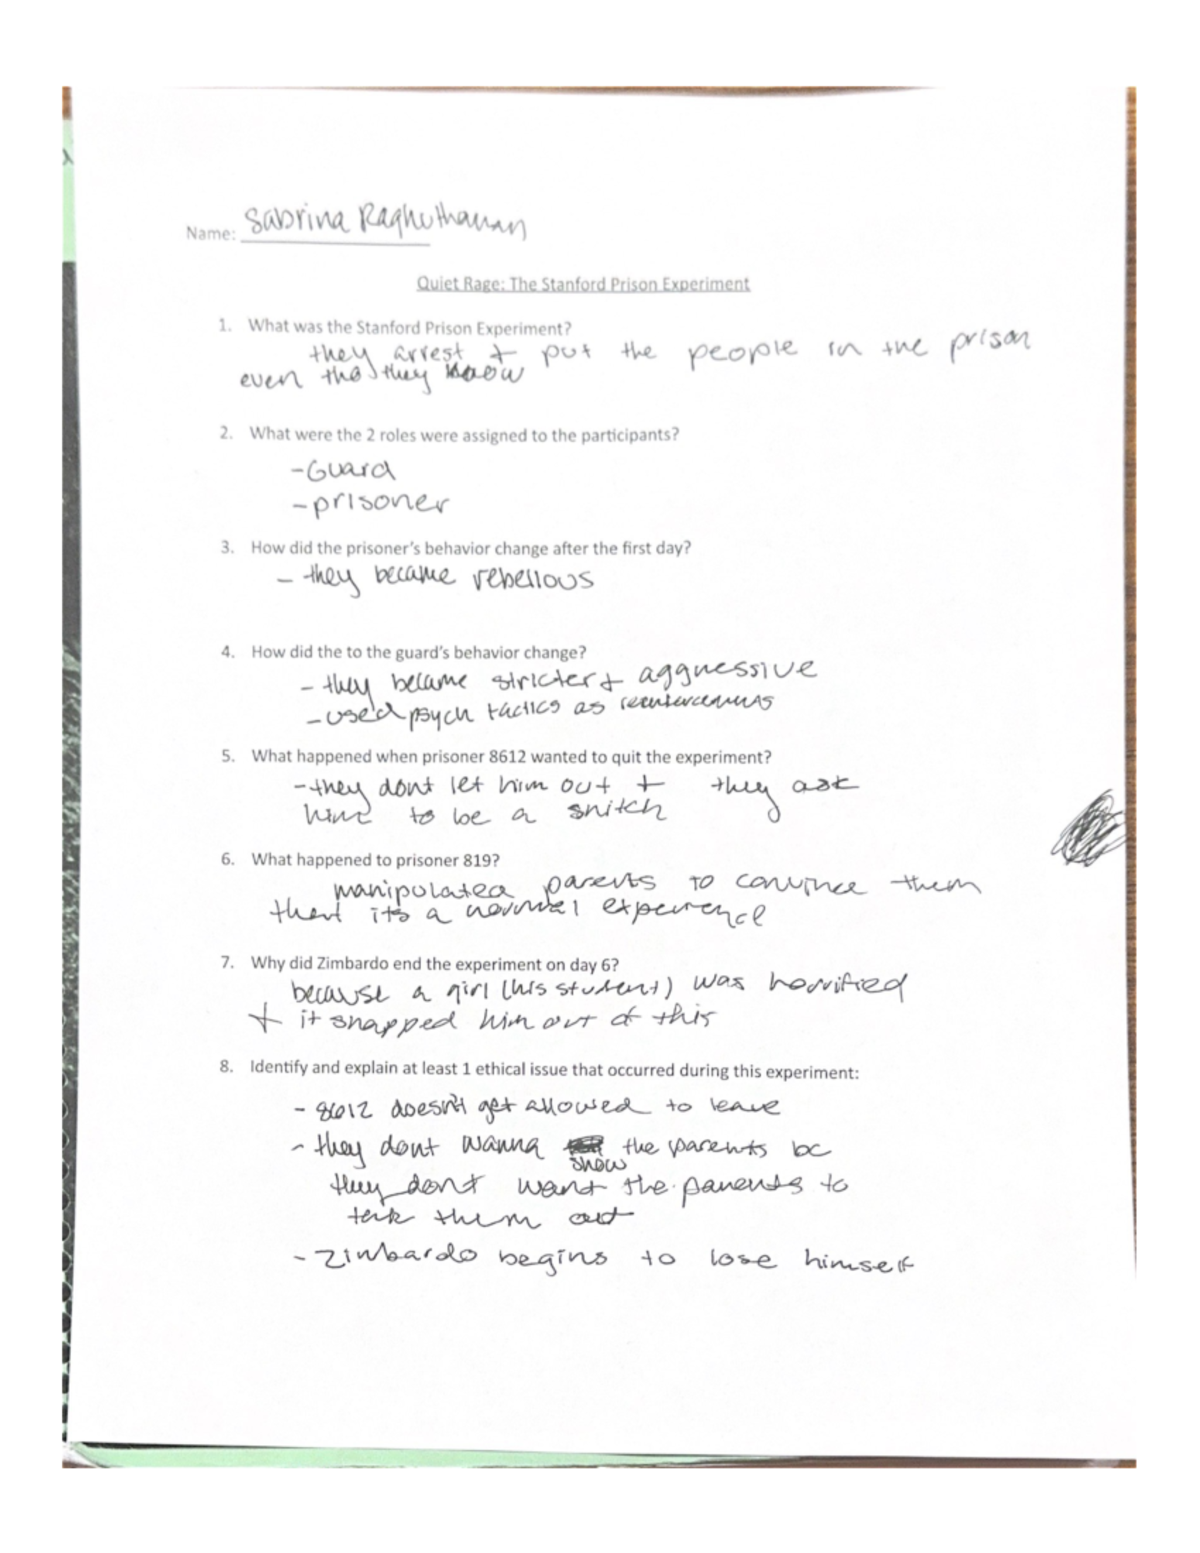 Name: Sabrina Raghuthaman
Quiet Rage: The Stanford Prison Experiment
1. What was the Stanford Prison Experiment?
they arrest + put the people in the prison
even tho they know
2. What were the 2 roles were assigned to the participants?
-Guard
-prisoner
3. How did the prisoner's behavior change after the first day?
- they became rebellous
4. How did the to the guard's behavior change?
- they became stricter + aggressive
- used psych tactics as
5. What happened when prisoner 8612 wanted to quit the experiment?
- they dont let him out + they ask
him to be a snitch
6. What happened to prisoner 819?
manipulated parents to convince them
that its a normal experience
7. Why did Zimbardo end the experiment on day 6?
because a girl (his student) was horrified
+ it snapped him out of this
8. Identify and explain at least 1 ethical issue that occurred during this experiment:
- 8612 doesn't get allowed to leave
- they dont wanna show the parents bc
they dont want the parents to
take them out
- Zimbardo begins to lose himself